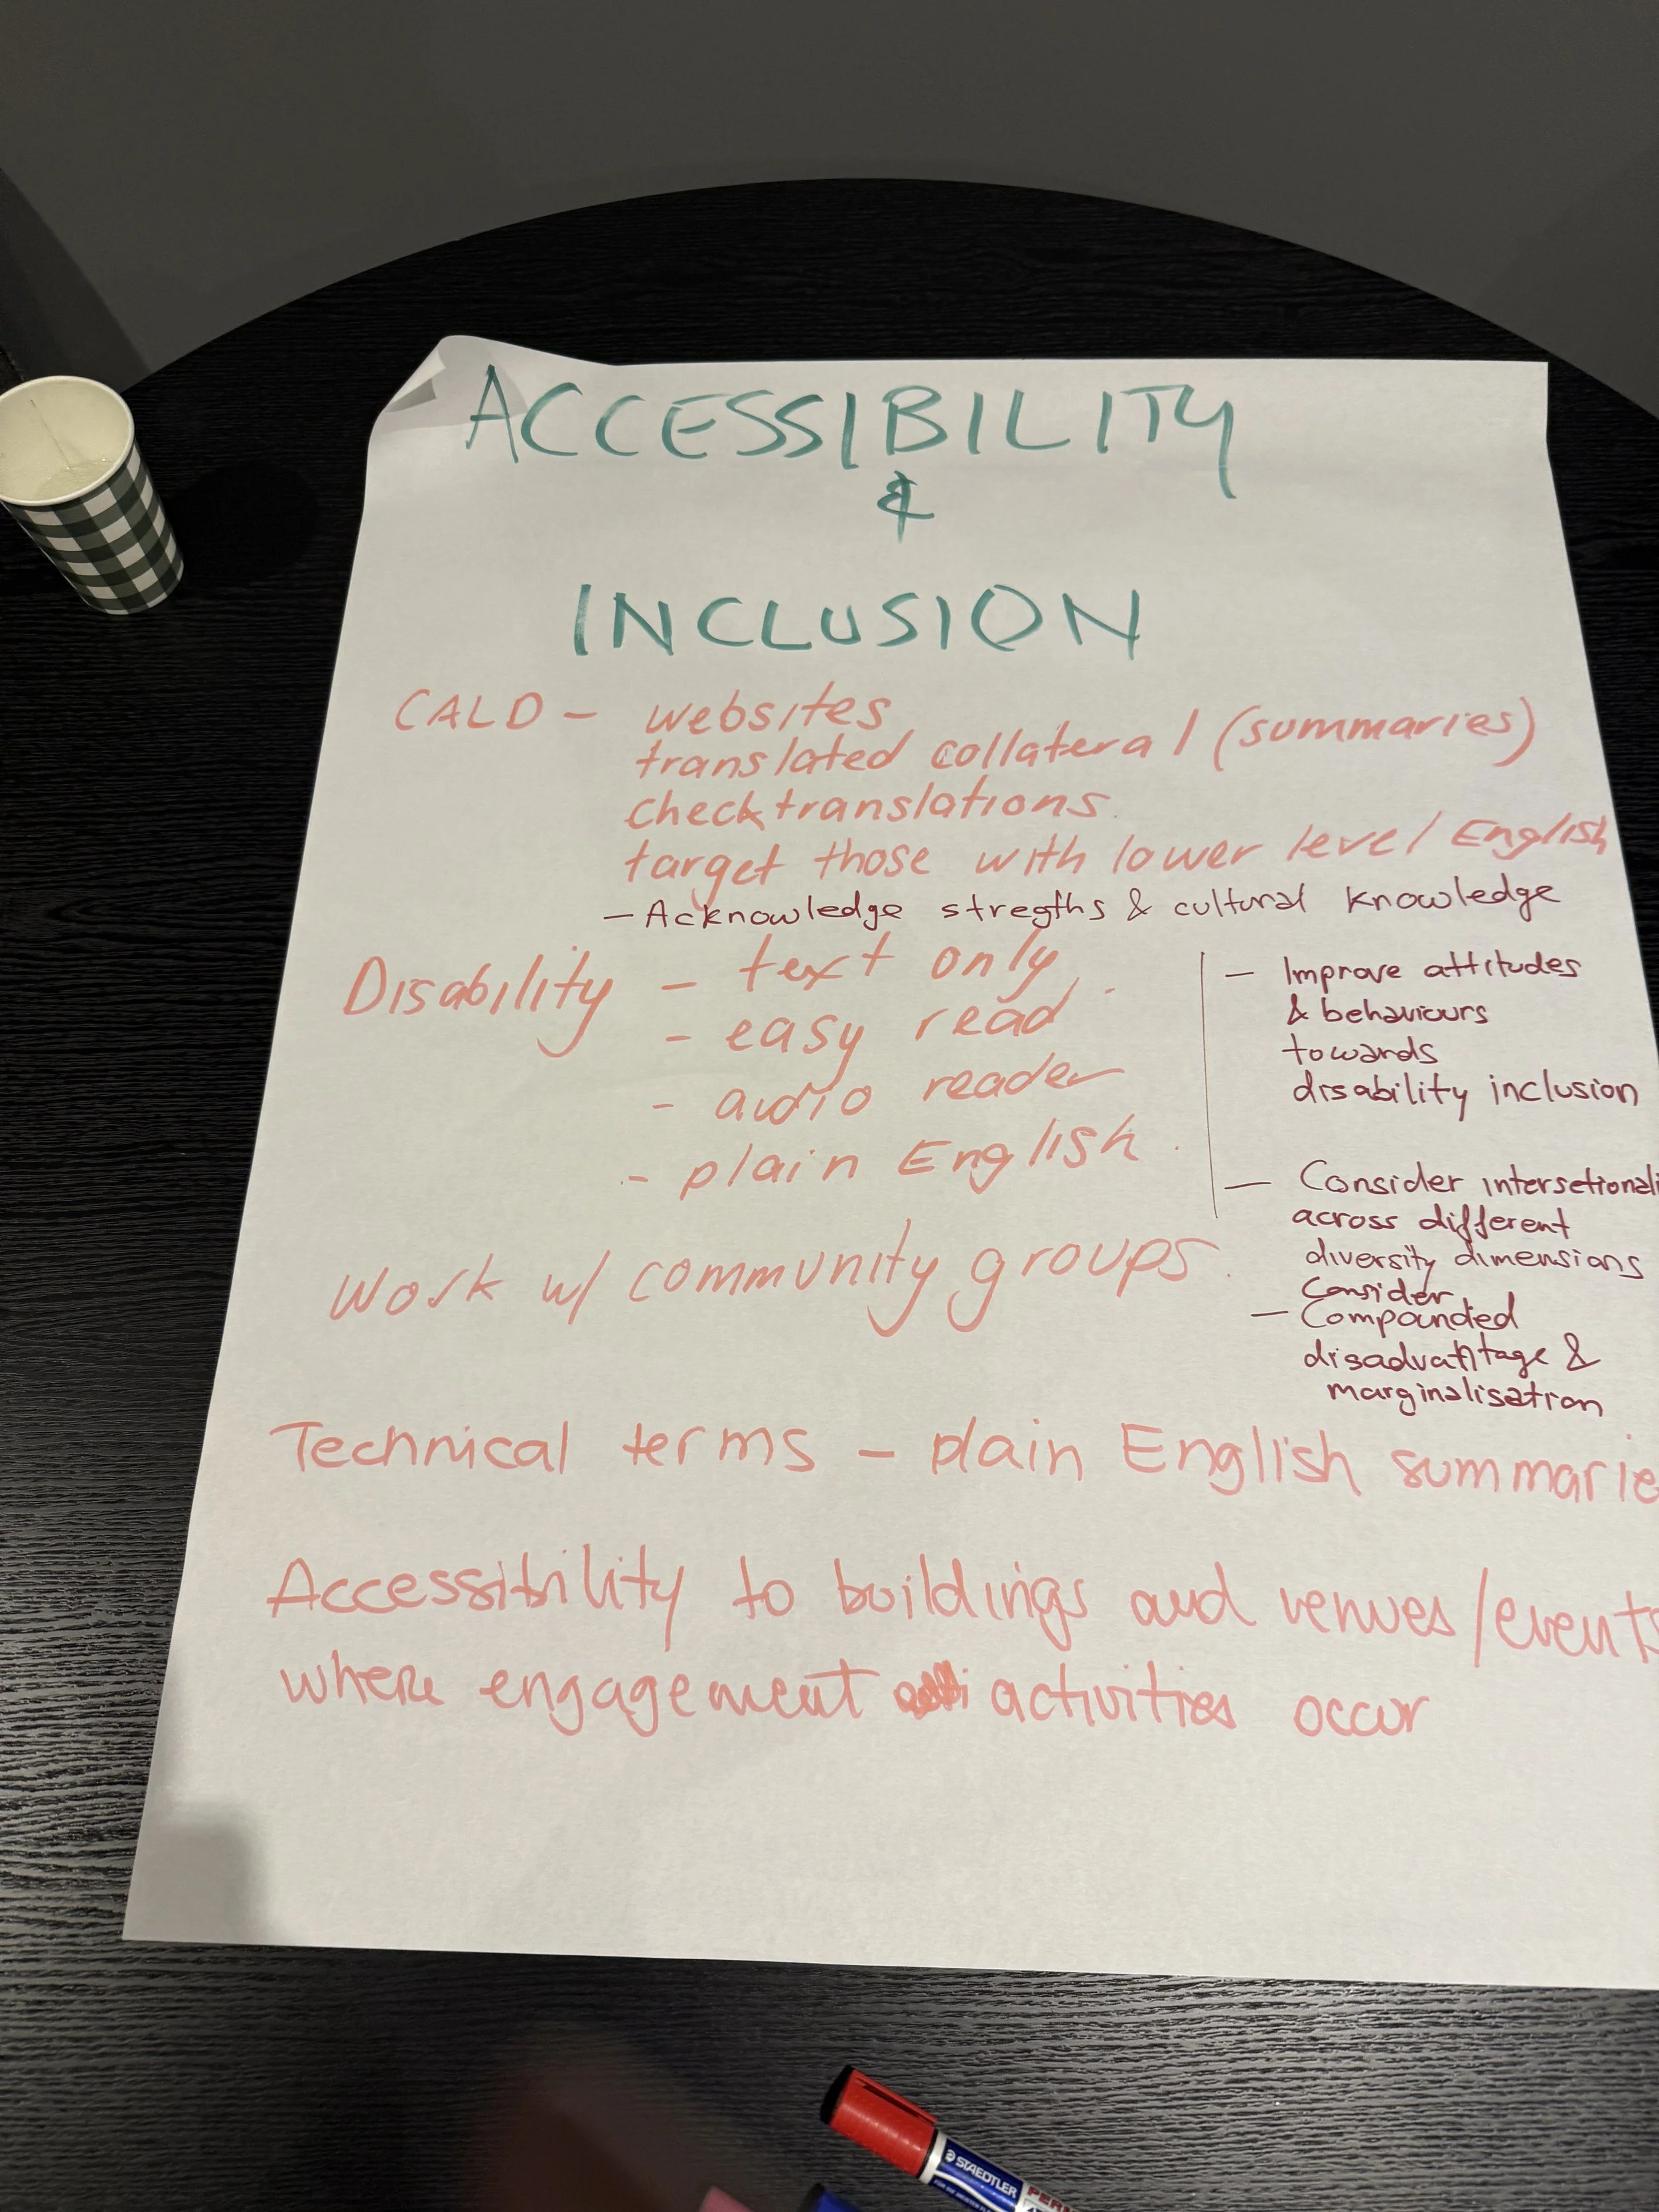 ACCESSIBILITY
&
INCLUSION
CALD - websites
translated collateral (summaries)
check translations.
target those with lower level English
- Acknowledge stregths & cultural knowledge
Disability - text only
- easy read
- audio reader
- plain English.
- Improve attitudes
& behaviours
towards
disability inclusion
- Consider intersetionali
across different
diversity dimensions
Consider
- Compounded
disadvantage &
marginalisation
Work w/ community groups.
Technical terms - plain English summarie
Accessibility to buildings and venues/events
where engagement activities occur
STAEDTLER